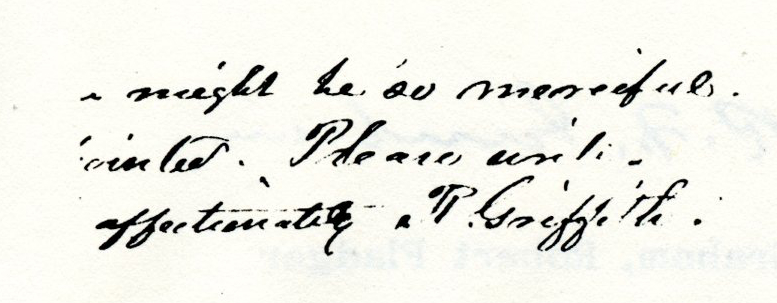 might be so merciful.
ointed. Please write.
affectionately T. Griffith.